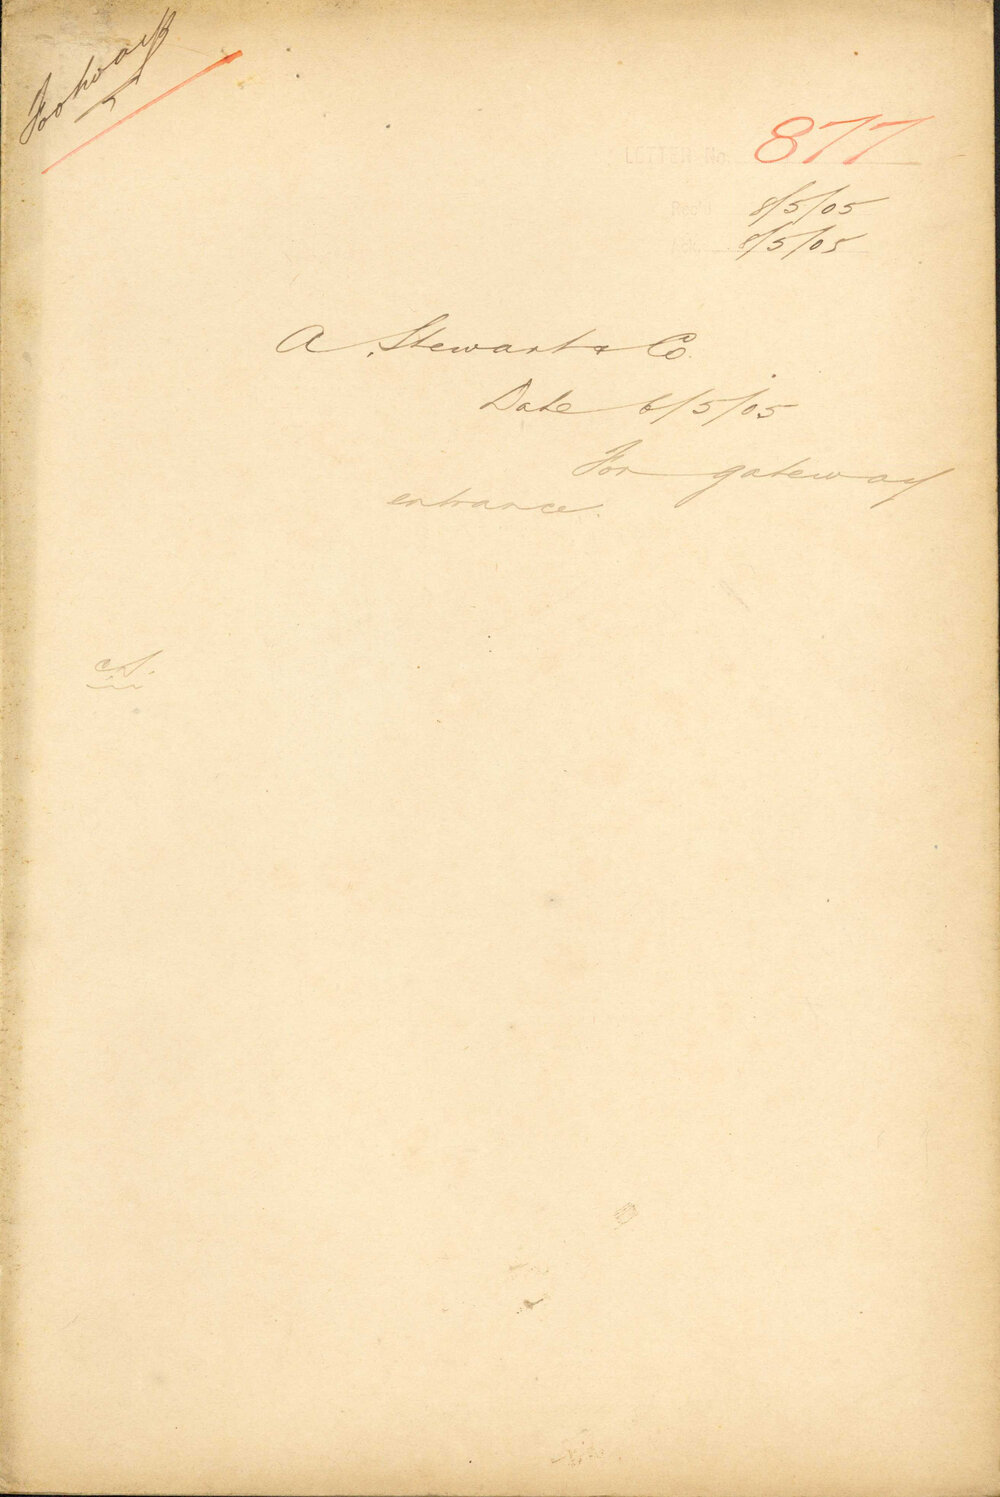 Footway
LETTER No. 877
Rec'd 8/5/05
8/5/05
A. Stewart & Co.
Date 6/5/05
For gateway
entrance.